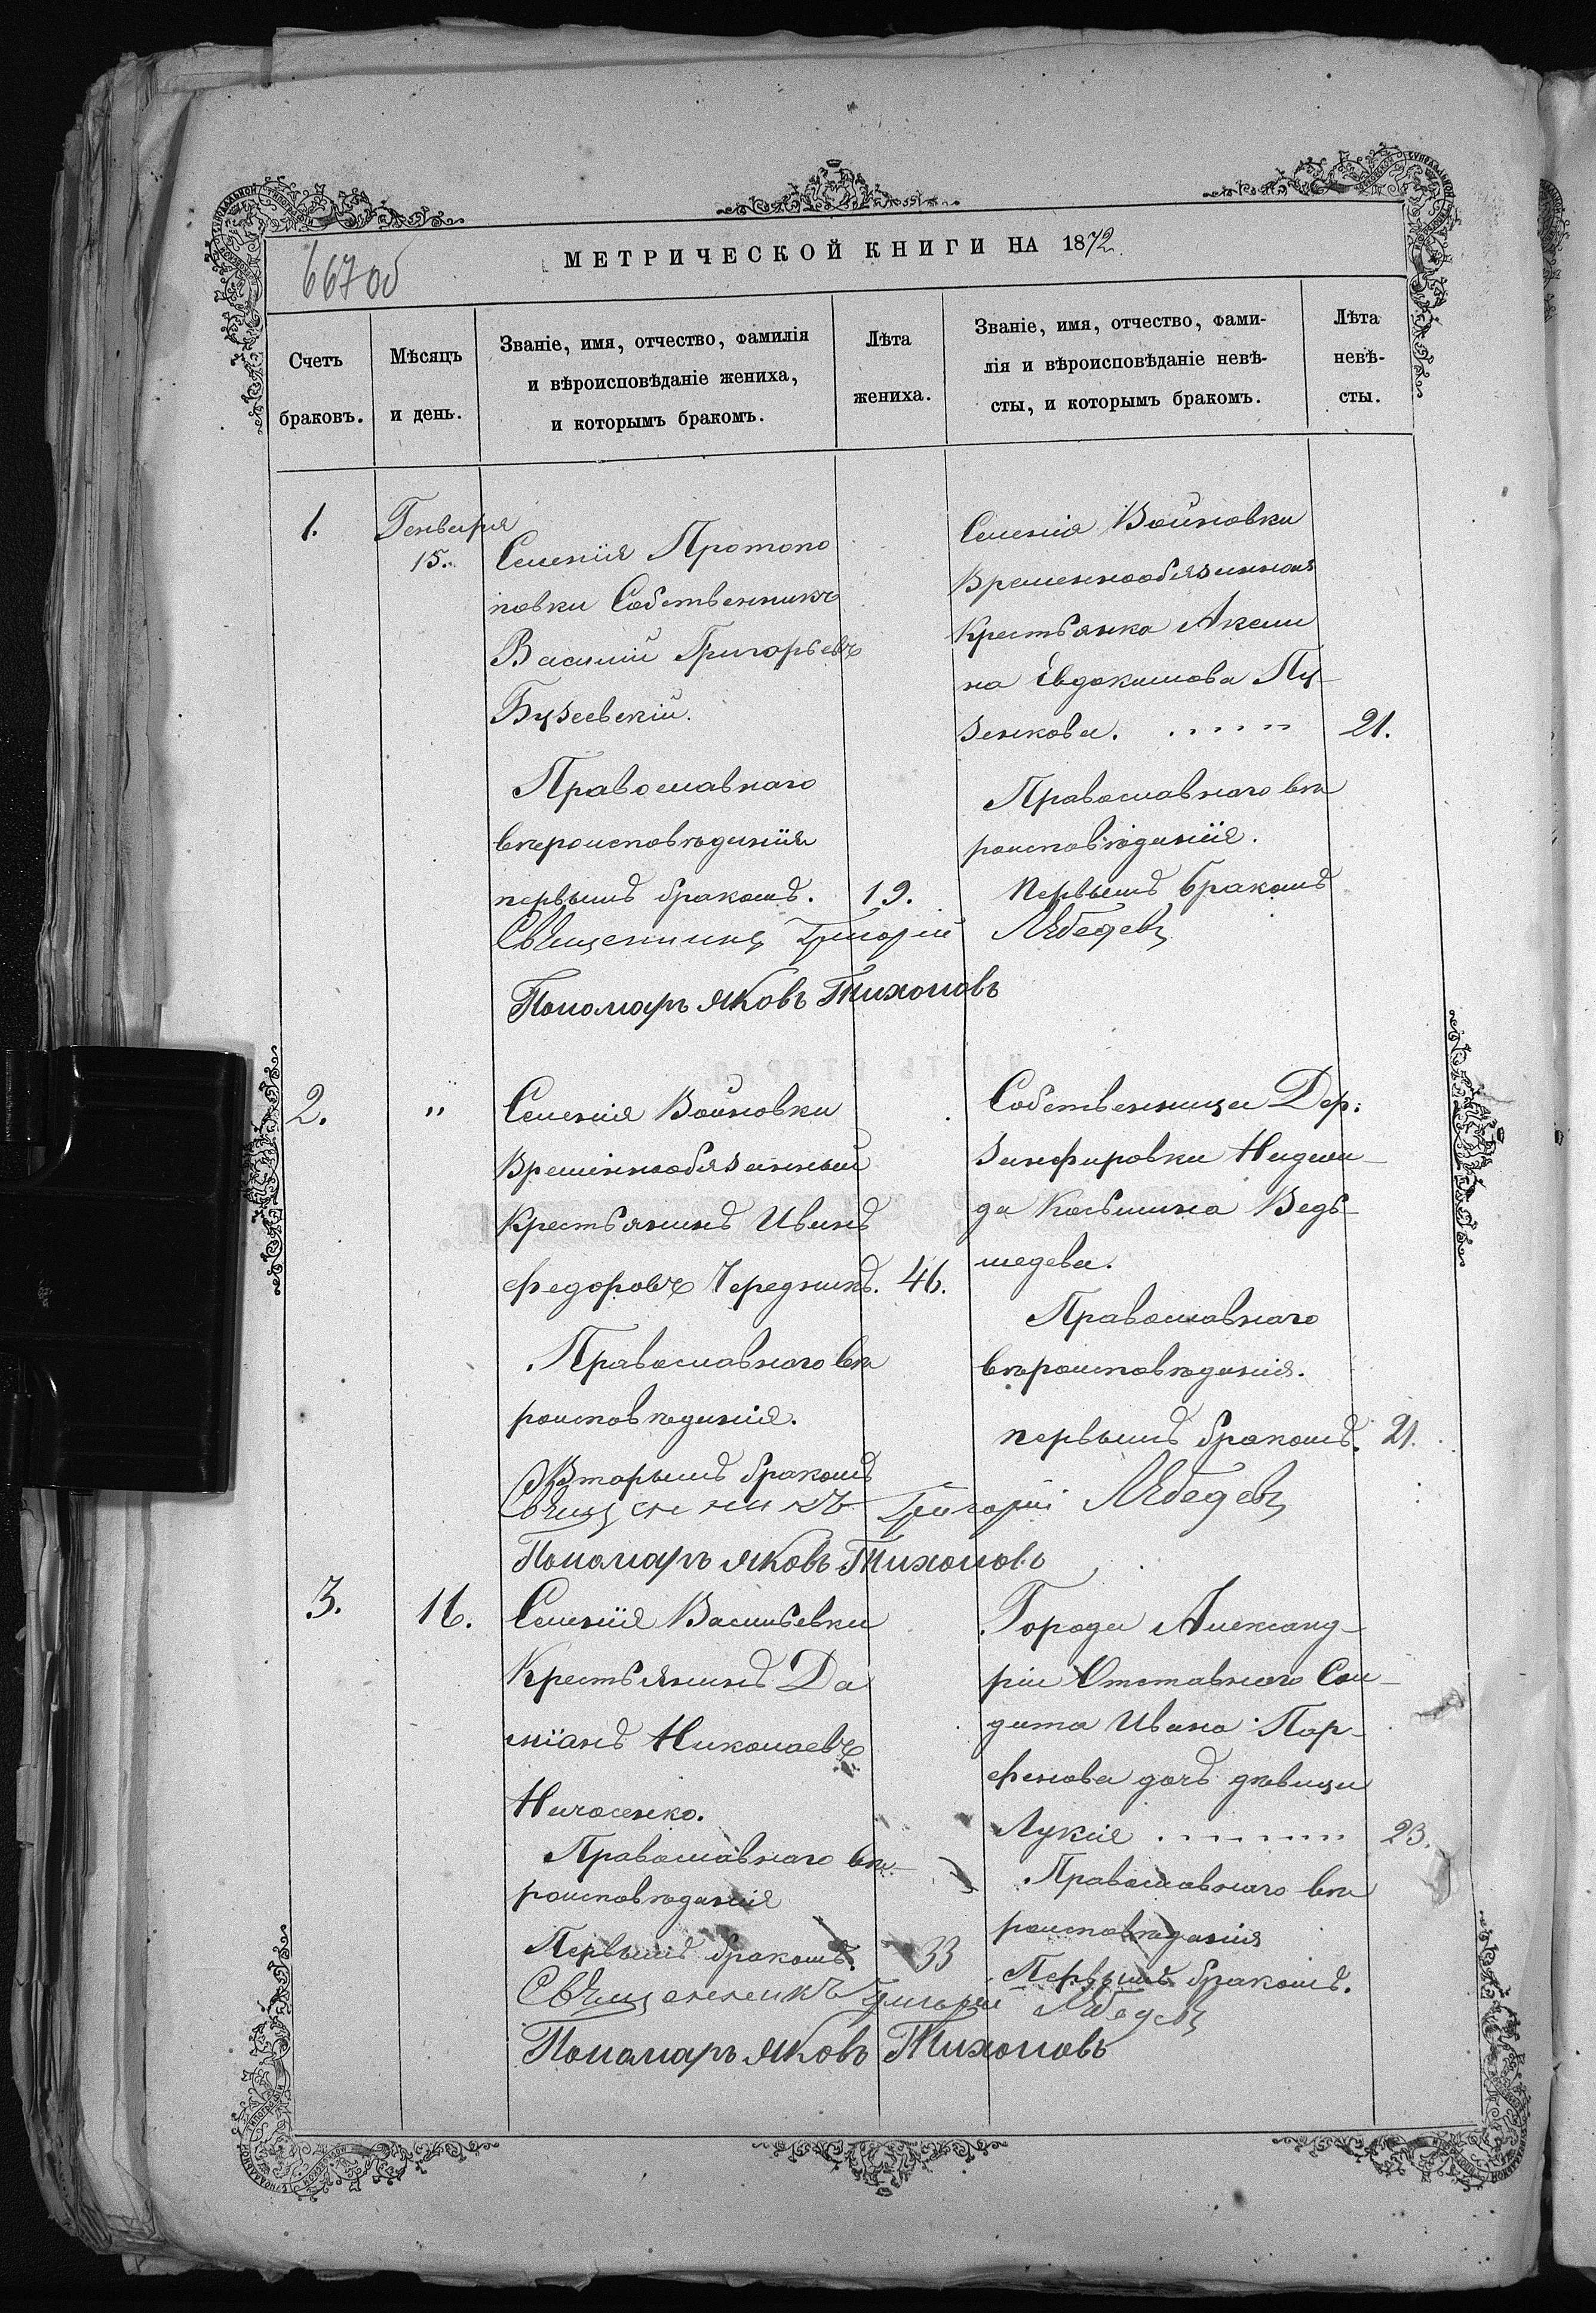 667об
МЕТРИЧЕСКОЙ КНИГИ НА 1872
Счетъ браковъ.
Мѣсяцъ и день.
Званіе, имя, отчество, фамилія
и вѣроисповѣданіе жениха,
и которымъ бракомъ.
Лѣта жениха.
Званіе, имя, отчество, фами-
лія и вѣроисповѣданіе невѣ-
сты, и которымъ бракомъ.
Лѣта невѣ-
сты.
1.
Генваря
15.
Селенія Протопо
повки Собственникъ
Василій Григорьевъ
Бузеевскій.
Православнаго
вѣроисповѣданія
первымъ бракомъ. 19.
Селенія Войновки
Временнообязанная
Крестьянка Аксини
на Евдокимова Пу-
зенкова. 21.
Православнаго вѣ
роисповѣданія.
Первымъ бракомъ
Священникъ Григорій Лебедевъ
Пономарь Яковъ Тихоновъ
2.
"
Селенія Войновки
Временнообязанный
Крестьянинъ Иванъ
Федоровъ Чередникъ. 46.
Православнаго вѣ
роисповѣданія.
Вторымъ бракомъ
Собственница Дер:
Занфировки Надеж-
да Косьмина Ведь-
медева.
Православнаго
вѣроисповѣданія.
первымъ бракомъ. 21.
Священникъ Григорій Лебедевъ
Пономарь Яковъ Тихоновъ
3.
16.
Селенія Васильевки
Крестьянинъ Да
міанъ Николаевъ
Ничосенко.
Православнаго вѣ-
роисповѣданія
Первымъ бракомъ. 33
Города Александ-
ріи Отставнаго Сол-
дата Ивана Пар-
фенова дочь дѣвица
Лукія 23.
Православнаго вѣ
роисповѣданія
Первымъ бракомъ.
Священникъ Григорій Лебедевъ
Пономарь Яковъ Тихоновъ